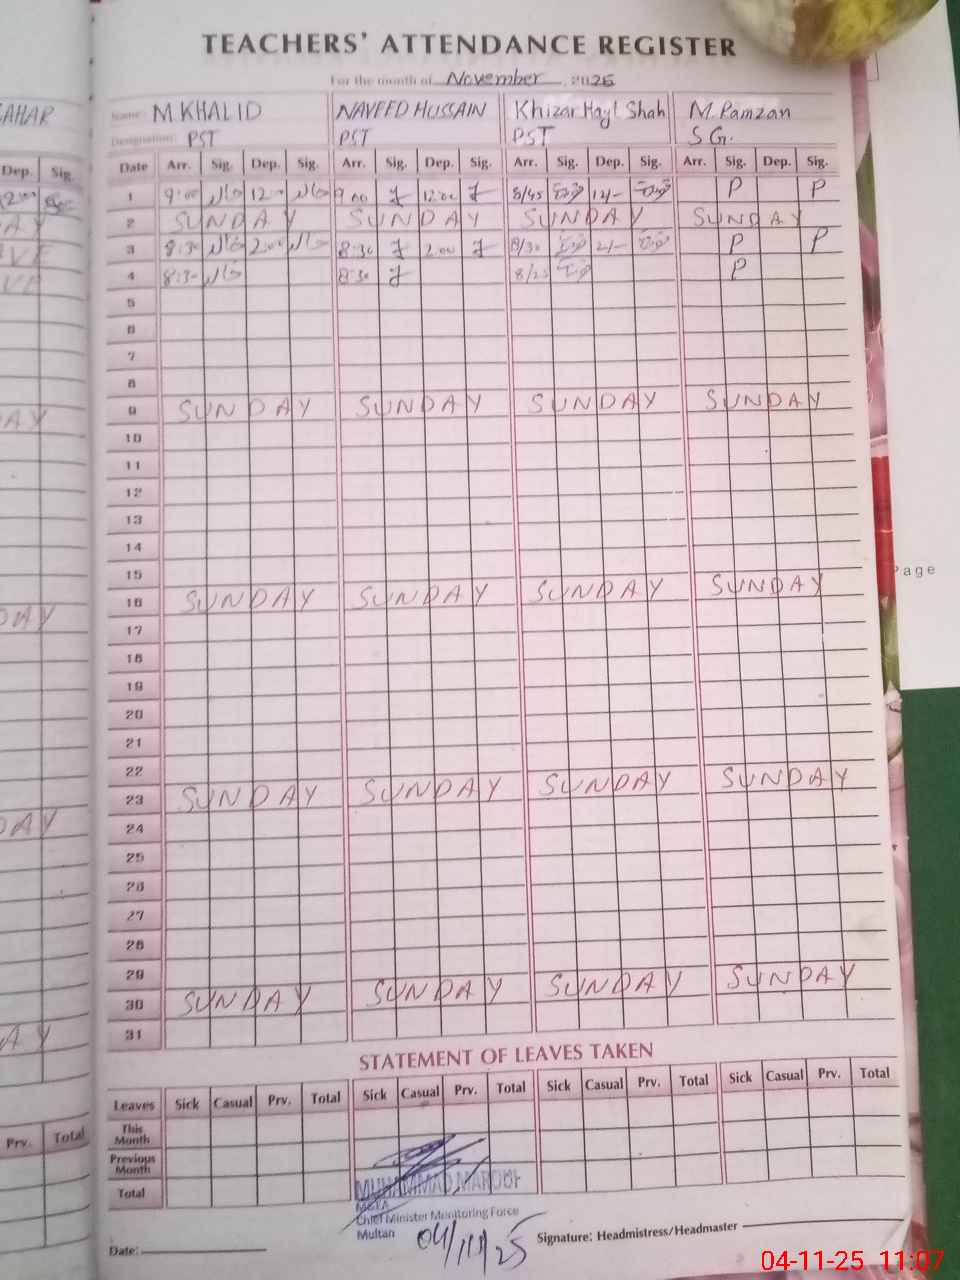 TEACHERS' ATTENDANCE REGISTER
For the month of November 2025
AHAR
Name: M KHALID NAVEED HUSSAIN Khizar Hayt Shah M. Ramzan
Designation: PST PST PST S G.
Dep. Sig. Date Arr. Sig. Dep. Sig. Arr. Sig. Dep. Sig. Arr. Sig. Dep. Sig. Arr. Sig. Dep. Sig.
1 9:00 خالد 12:00 خالد 9 00 12:00 8/45 12/- P P
AY 2 SUNDAY SUNDAY SUNDAY SUNDAY
VE 3 8:30 خالد 2:00 خالد 8:30 2:00 8/30 2/- P P
VE 4 8:30 خالد 8:30 8/25 P
5
6
7
8
DAY 9 SUNDAY SUNDAY SUNDAY SUNDAY
10
11
12
13
14
15
DAY 16 SUNDAY SUNDAY SUNDAY SUNDAY
17
18
19
20
21
22
DAY 23 SUNDAY SUNDAY SUNDAY SUNDAY
24
25
26
27
28
29
AY 30 SUNDAY SUNDAY SUNDAY SUNDAY
31
STATEMENT OF LEAVES TAKEN
Prv. Total Leaves Sick Casual Prv. Total Sick Casual Prv. Total Sick Casual Prv. Total Sick Casual Prv. Total
This Month
Previous Month
Total
MUHAMMAD MAROOF
Chief Minister Monitoring Force
Multan
04/11/25
Date: Signature: Headmistress/Headmaster
Page
04-11-25 11:07